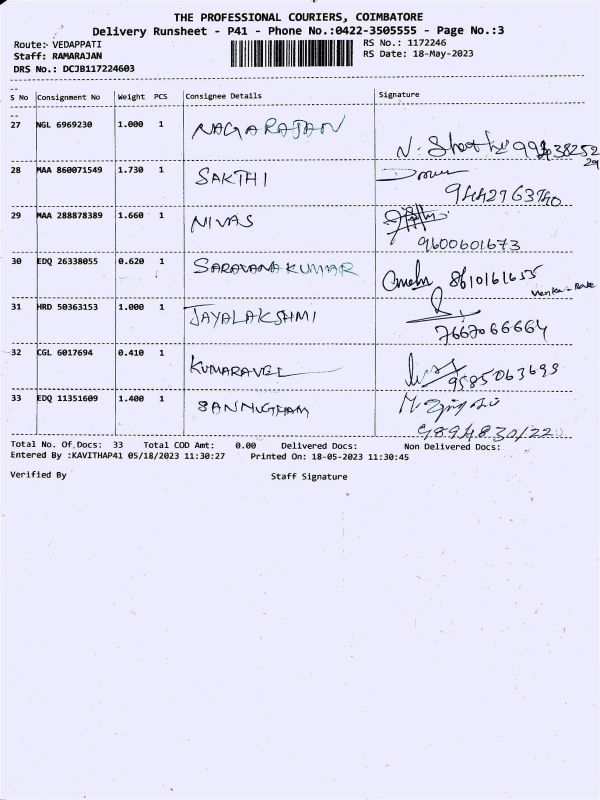 THE PROFESSIONAL COURIERS, COIMBATORE
Delivery Runsheet - P41 - Phone No.:0422-3505555 - Page No.:3
Route:- VEDAPPATI RS No.: 1172246
Staff: RAMARAJAN RS Date: 18-May-2023
DRS No.: DCJB117224603
S No Consignment No Weight PCS Consignee Details Signature
27 NGL 6969230 1.000 1 NAGARAJAN
28 MAA 860071549 1.730 1 SAKTHI
9442763740
29 MAA 288878389 1.660 1 NIVAS
9600601673
30 EDQ 26338055 0.620 1 SARAVANA KUMAR 8610161655
31 HRD 50363153 1.000 1 JAYALAKSHMI
7667066664
32 CGL 6017694 0.410 1 KUMARAVEL
9585063699
33 EDQ 11351609 1.400 1 SANNUGHAM
9894830122
Total No. Of.Docs: 33 Total COD Amt: 0.00 Delivered Docs: Non Delivered Docs:
Entered By :KAVITHAP41 05/18/2023 11:30:27 Printed On: 18-05-2023 11:30:45
Verified By Staff Signature